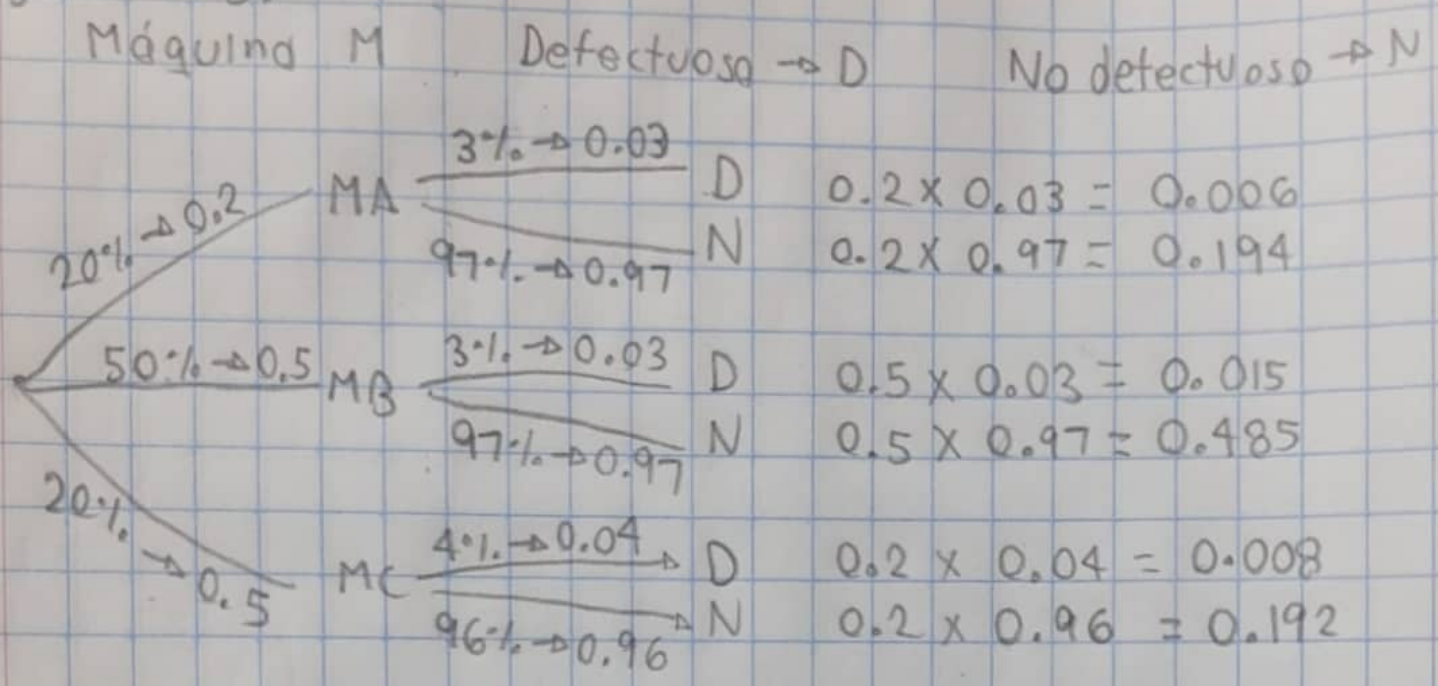 Máquina M Defectuoso → D No defectuoso → N
20% → 0.2 MA 3% → 0.03 D 0.2 x 0.03 = 0.006
97% → 0.97 N 0.2 x 0.97 = 0.194
50% → 0.5 MB 3% → 0.03 D 0.5 x 0.03 = 0.015
97% → 0.97 N 0.5 x 0.97 = 0.485
20% → 0.5 MC 4% → 0.04 D 0.2 x 0.04 = 0.008
96% → 0.96 N 0.2 x 0.96 = 0.192